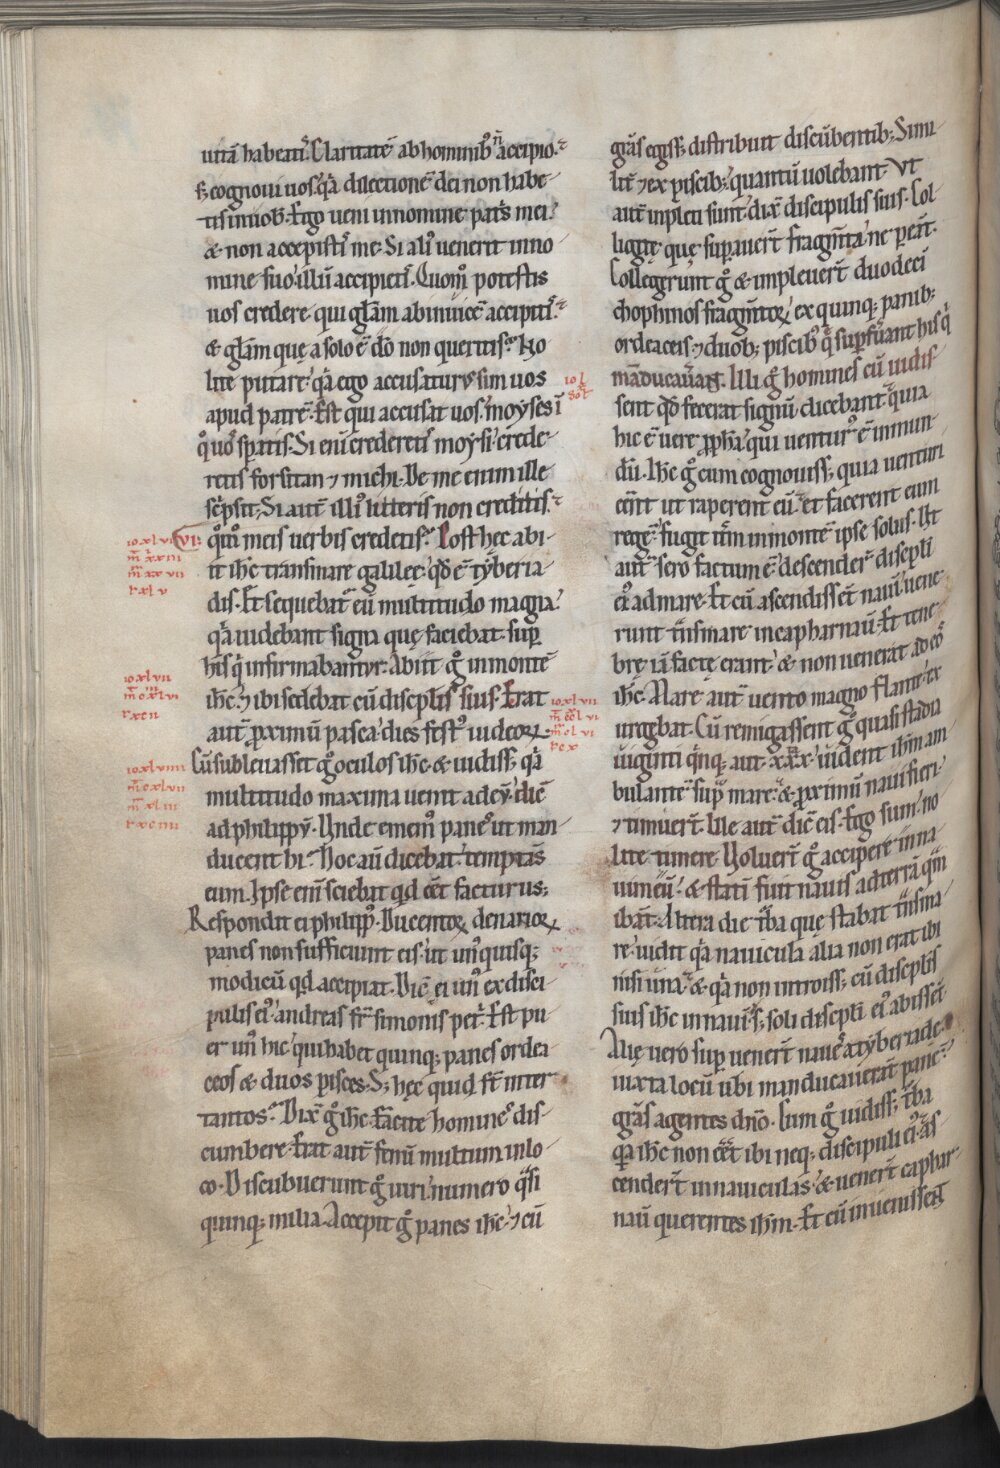 uitã habeatis. Claritatẽ ab hominibꝰ ñ accipio.
sꝫ cognoui uos. qͥa dilectionẽ dei non habe-
tis in uob. Ego ueni in nomine patͥs mei.
& non accepistiˢ me. Si aliꝰ uenerit in no
mine suo. illũ accipietiˢ. Quomͦ potestis
uos credere. qui gl̃am ab inuicẽ accipitiˢ.
& gl̃am quę a solo ẽ dõ non queritis. No
lite putare. qͥa ego accusaturus sim uos
apud patrẽ. Est qui accusat uos. moyses ĩ
qͦ uoˢ speratis. Si enĩ crederetiˢ moysi. crede-
retis forsitan ⁊ michi. De me enim ille
scͥpsit. Si aut̃ illiꝰ litteris non creditis.
VI. qͦm̃ meis uerbis credetis. Post hęc abi-
it ih̃c trans mare galileę. qd̃ ẽ tyberia
dis. Et sequebatͬ eũ multitudo magna.
qͥa uidebant signa quę faciebat sup̱
his qͥ infirmabantur. Abiit gͦ in montẽ
ih̃c. ⁊ ibi sedebat cũ discip̃lis suis. Erat
aut̃ ꝓximũ pascà dies festꝰ iudeoꝝ.
Cũ subleuasset gͦ oculos ih̃c. & uidissꝫ qͥa
multitudo maxima uenit ad eũ. dicͥ
ad philippũ. Unde ememꝰ paneˢ ut man
ducent hi. Hoc aũ dicebat. temptãs
eum. Ipse enĩ sciebat qd eẽt facturus.
Respondit ei philippꝰ. Ducentoꝝ denarioꝝ
panes non sufficiunt eis. ut unꝰquisqꝫ
modicũ qd accipiat. Dicͥ ei unꝰ ex disci-
pulis eiꝰ. andreas fr̃ simonis petͥ. Est pu
er unꝰ hic. qui habet quinqꝫ panes ordea
ceos & duos pisces. Sꝫ hęc quid st̃ inter
tantos. Dixͭ gͦ ih̃c. Facite homineˢ dis-
cumbere. Erat aut̃ fenũ multum in lo-
co. Discubuerunt gͦ uiri. numero qͣsi
quinqꝫ milia. Accepit gͦ panes ih̃c. ⁊ cũ
gr̃as egissꝫ. distribuit discũbentibꝫ. Simi-
lit̃ ⁊ ex piscibꝫ. quantũ uolebant. Vt
aut̃ impleti sunt. dixͭ discipulis suis. Col-
ligite quę supauer̃t fragm̃ta. ne pereãt.
Collegerunt gͦ & impleuer̃t duodecĩ
chophinos fragm̃toꝝ. ex quinqꝫ panibꝫ
ordeaceis. ⁊ duobꝫ piscibꝰ q̃ supfũant his qͥ
mãducauãt. Illi gͦ homines cũ uidis-
sent qd̃ fecerat signũ. dicebant. quia
hic ẽ uere ꝓph̃a. qui uenturꝰ ẽ in mun-
dũ. Ih̃c gͦ cum cognouissꝫ. quia uenturi
eẽnt ut raperent eũ. et facerent eum
regẽ. fugit it̃m in montẽ ipse solus. Ut
aut̃ sero factum ẽ. descender̃t discipl̃i
eiꝰ ad mare. Et cũ ascendissẽt nauĩ. uene-
runt tñs mare in capharnaũ. Et tene-
brę iã factę erant. & non uenerat ad eoˢ
ih̃c. Mare aut̃ uento magno flante. ex
urgebat. Cũ remigassent gͦ quasi stadia
uiginti qͥnqꝫ aut xxx. uident ih̃m am
bulantẽ supͣ mare. & ꝓximũ naui fieri.
⁊ timuer̃t. Ille aut̃ dicͥ eis. Ego sum. no
lite timere. Voluer̃t gͦ accipere in na
uim eũ. & statĩ fuit nauis ad terrã quã
ibãt. Altera die tͬba quę stabat tñs ma
re. uidit qͥa nauicula alia non erat ibi
nisi una. & qͥa non introissꝫ cũ discip̃lis
suis ih̃c in nauĩ. sꝫ soli discipl̃i eiꝰ abissẽt.
Alię uero superuener̃t naueˢ a tyberiade.
iuxta locũ ubi manducauerãt panẽ.
gr̃as agentes dnõ. Cum gͦ uidissꝫ tͬba
qͥa ih̃c non eẽt ibi neqꝫ discipuli eiꝰ. as-
cender̃t in nauiculas. & uener̃t caphar-
naũ querentes ih̃m. Et cũ inuenissent